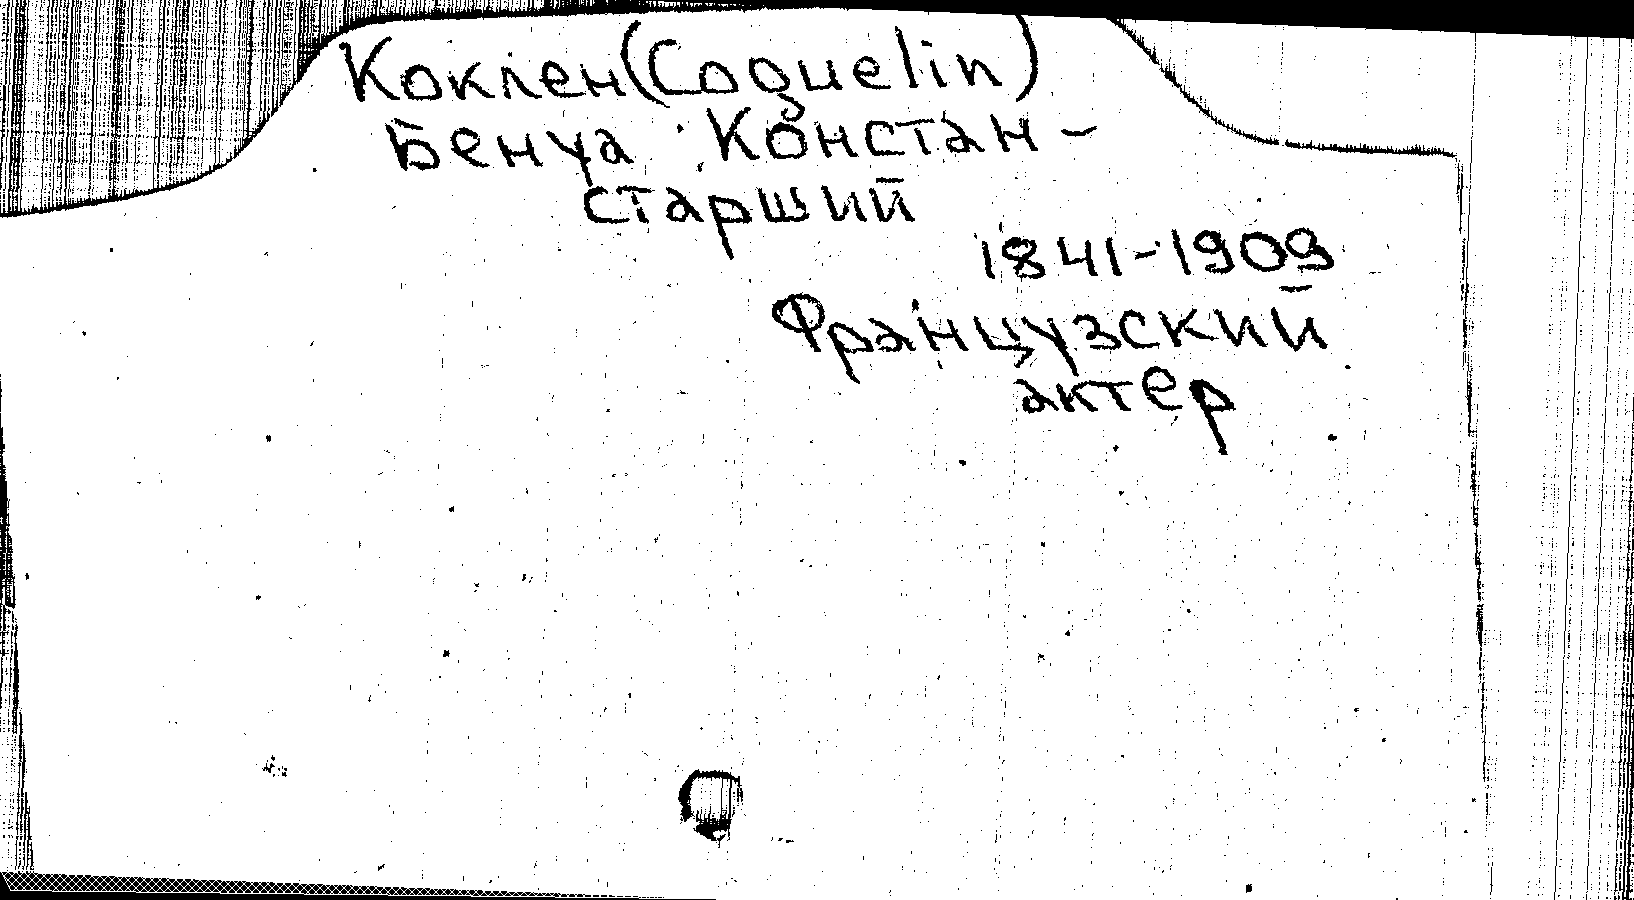 Коклен (Coquelin)
Бенуа Констан -
старший
1841-1909
Французский
актер